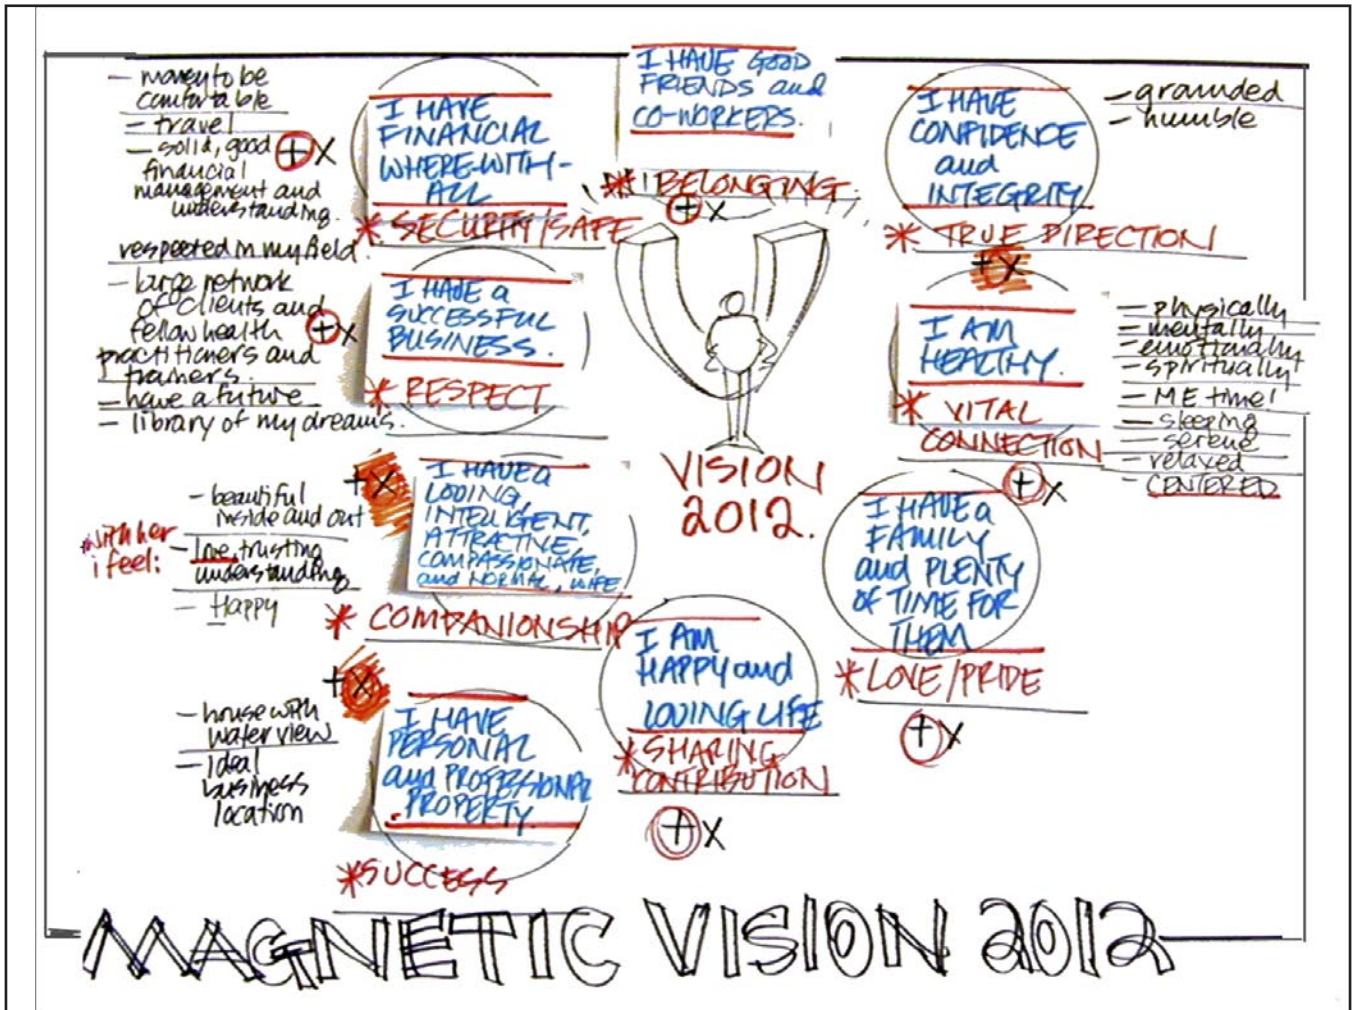 - money to be
comfortable
- travel
- solid, good
financial
management and
understanding.
+ X
I HAVE
FINANCIAL
WHERE-WITH-
ALL
* SECURITY/SAFE
I HAVE GOOD
FRIENDS and
CO-WORKERS.
* BELONGING
+ X
I HAVE
CONFIDENCE
and
INTEGRITY
* TRUE DIRECTION
+ X
- grounded
- humble
respected in my field.
- large network
of clients and
fellow health
practitioners and
trainers.
- have a future
- library of my dreams.
+ X
I HAVE a
SUCCESSFUL
BUSINESS.
* RESPECT
I AM
HEALTHY.
* VITAL
CONNECTION
+ X
- physically
- mentally
- emotionally
- spiritually
- ME time!
- sleeping
- serene
- relaxed
- CENTERED
VISION
2012.
with her
i feel:
- beautiful
inside and out
- love, trusting
understanding
- Happy
+ X
I HAVE a
LOVING,
INTELLIGENT,
ATTRACTIVE,
COMPASSIONATE,
and NORMAL, WIFE
* COMPANIONSHIP
I HAVE a
FAMILY
and PLENTY
OF TIME FOR
THEM
* LOVE/PRIDE
+ X
I AM
HAPPY and
LOVING LIFE
* SHARING
CONTRIBUTION
+ X
- house with
water view
- ideal
business
location
+ X
I HAVE
PERSONAL
and PROFESSIONAL
PROPERTY.
* SUCCESS
MAGNETIC VISION 2012